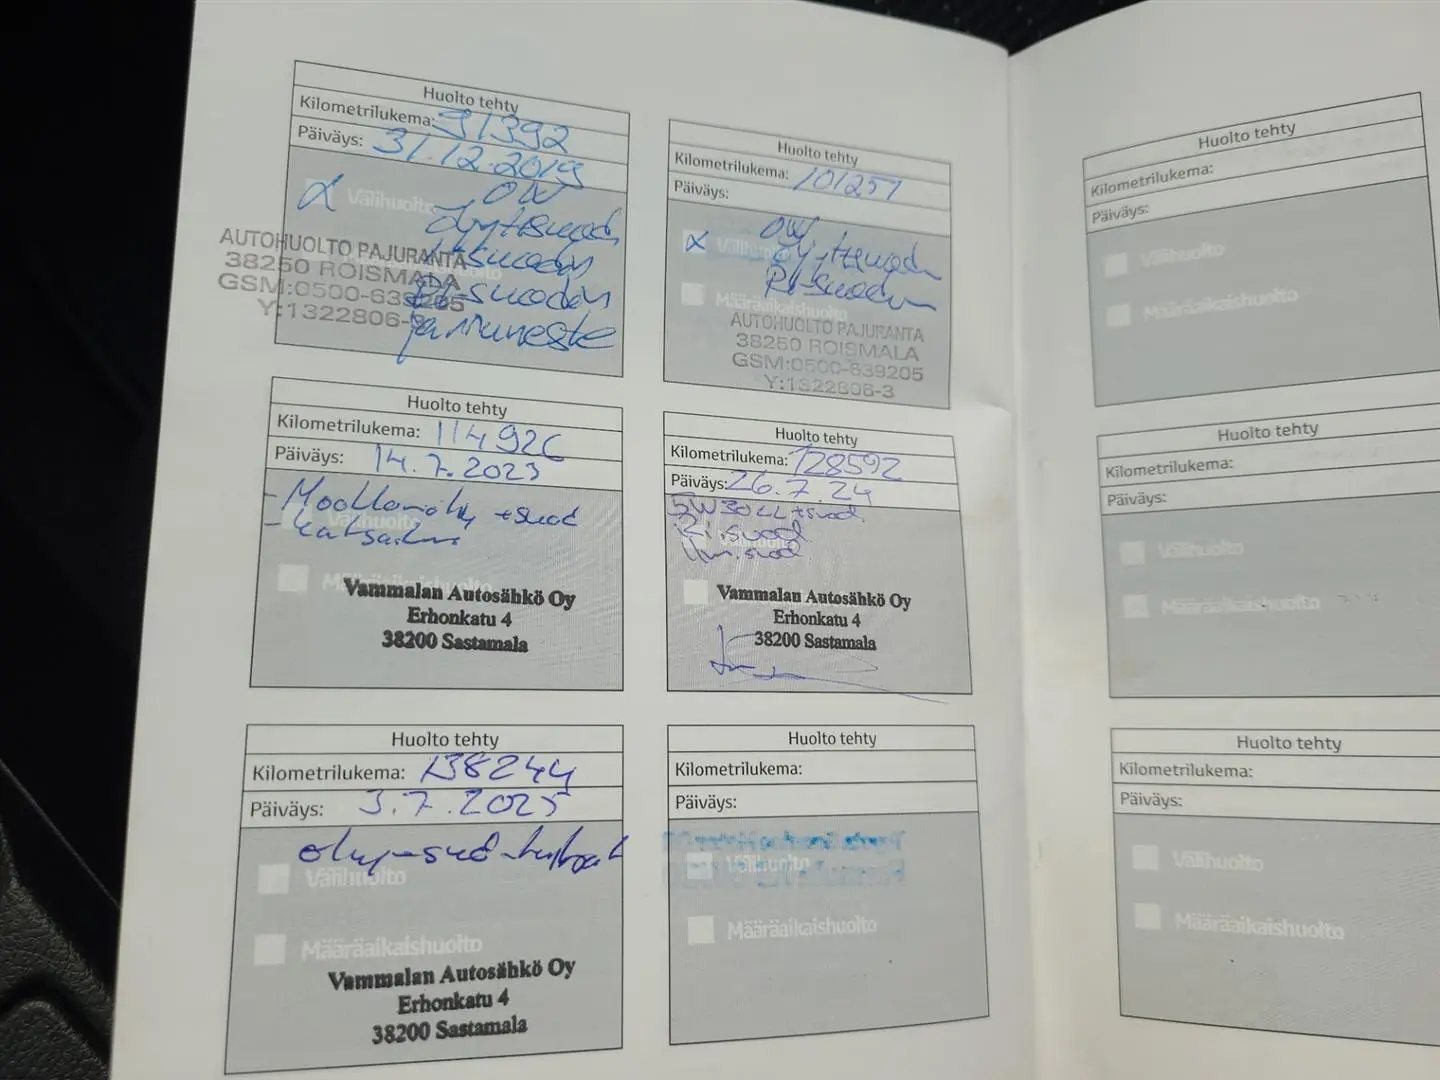 Huolto tehty
Kilometrilukema: 91392
Päiväys: 31.12.2019
Välihuolto
AUTOHUOLTO PAJURANTA
38250 ROISMALA
GSM:0500-639205
Y:1322806-3
Jarruneste
Huolto tehty
Kilometrilukema: 101251
Päiväys:
Välihuolto
Määräaikaishuolto
AUTOHUOLTO PAJURANTA
38250 ROISMALA
GSM:0500-639205
Y:1322806-3
Huolto tehty
Kilometrilukema: 114926
Päiväys: 14.7.2023
+suod
Välihuolto
Määräaikaishuolto
Vammalan Autosähkö Oy
Erhonkatu 4
38200 Sastamala
Huolto tehty
Kilometrilukema: 128592
Päiväys: 26.7.24
5W30 LL+suod.
Ri.suod
Ilm.suod
Vammalan Autosähkö Oy
Erhonkatu 4
38200 Sastamala
Huolto tehty
Kilometrilukema: 138244
Päiväys: 3.7.2025
Välihuolto
Määräaikaishuolto
Vammalan Autosähkö Oy
Erhonkatu 4
38200 Sastamala
Huolto tehty
Kilometrilukema:
Päiväys:
Välihuolto
Määräaikaishuolto
Huolto tehty
Kilometrilukema:
Päiväys:
Välihuolto
Määräaikaishuolto
Huolto tehty
Kilometrilukema:
Päiväys:
Välihuolto
Määräaikaishuolto
Huolto tehty
Kilometrilukema:
Päiväys:
Välihuolto
Määräaikaishuolto